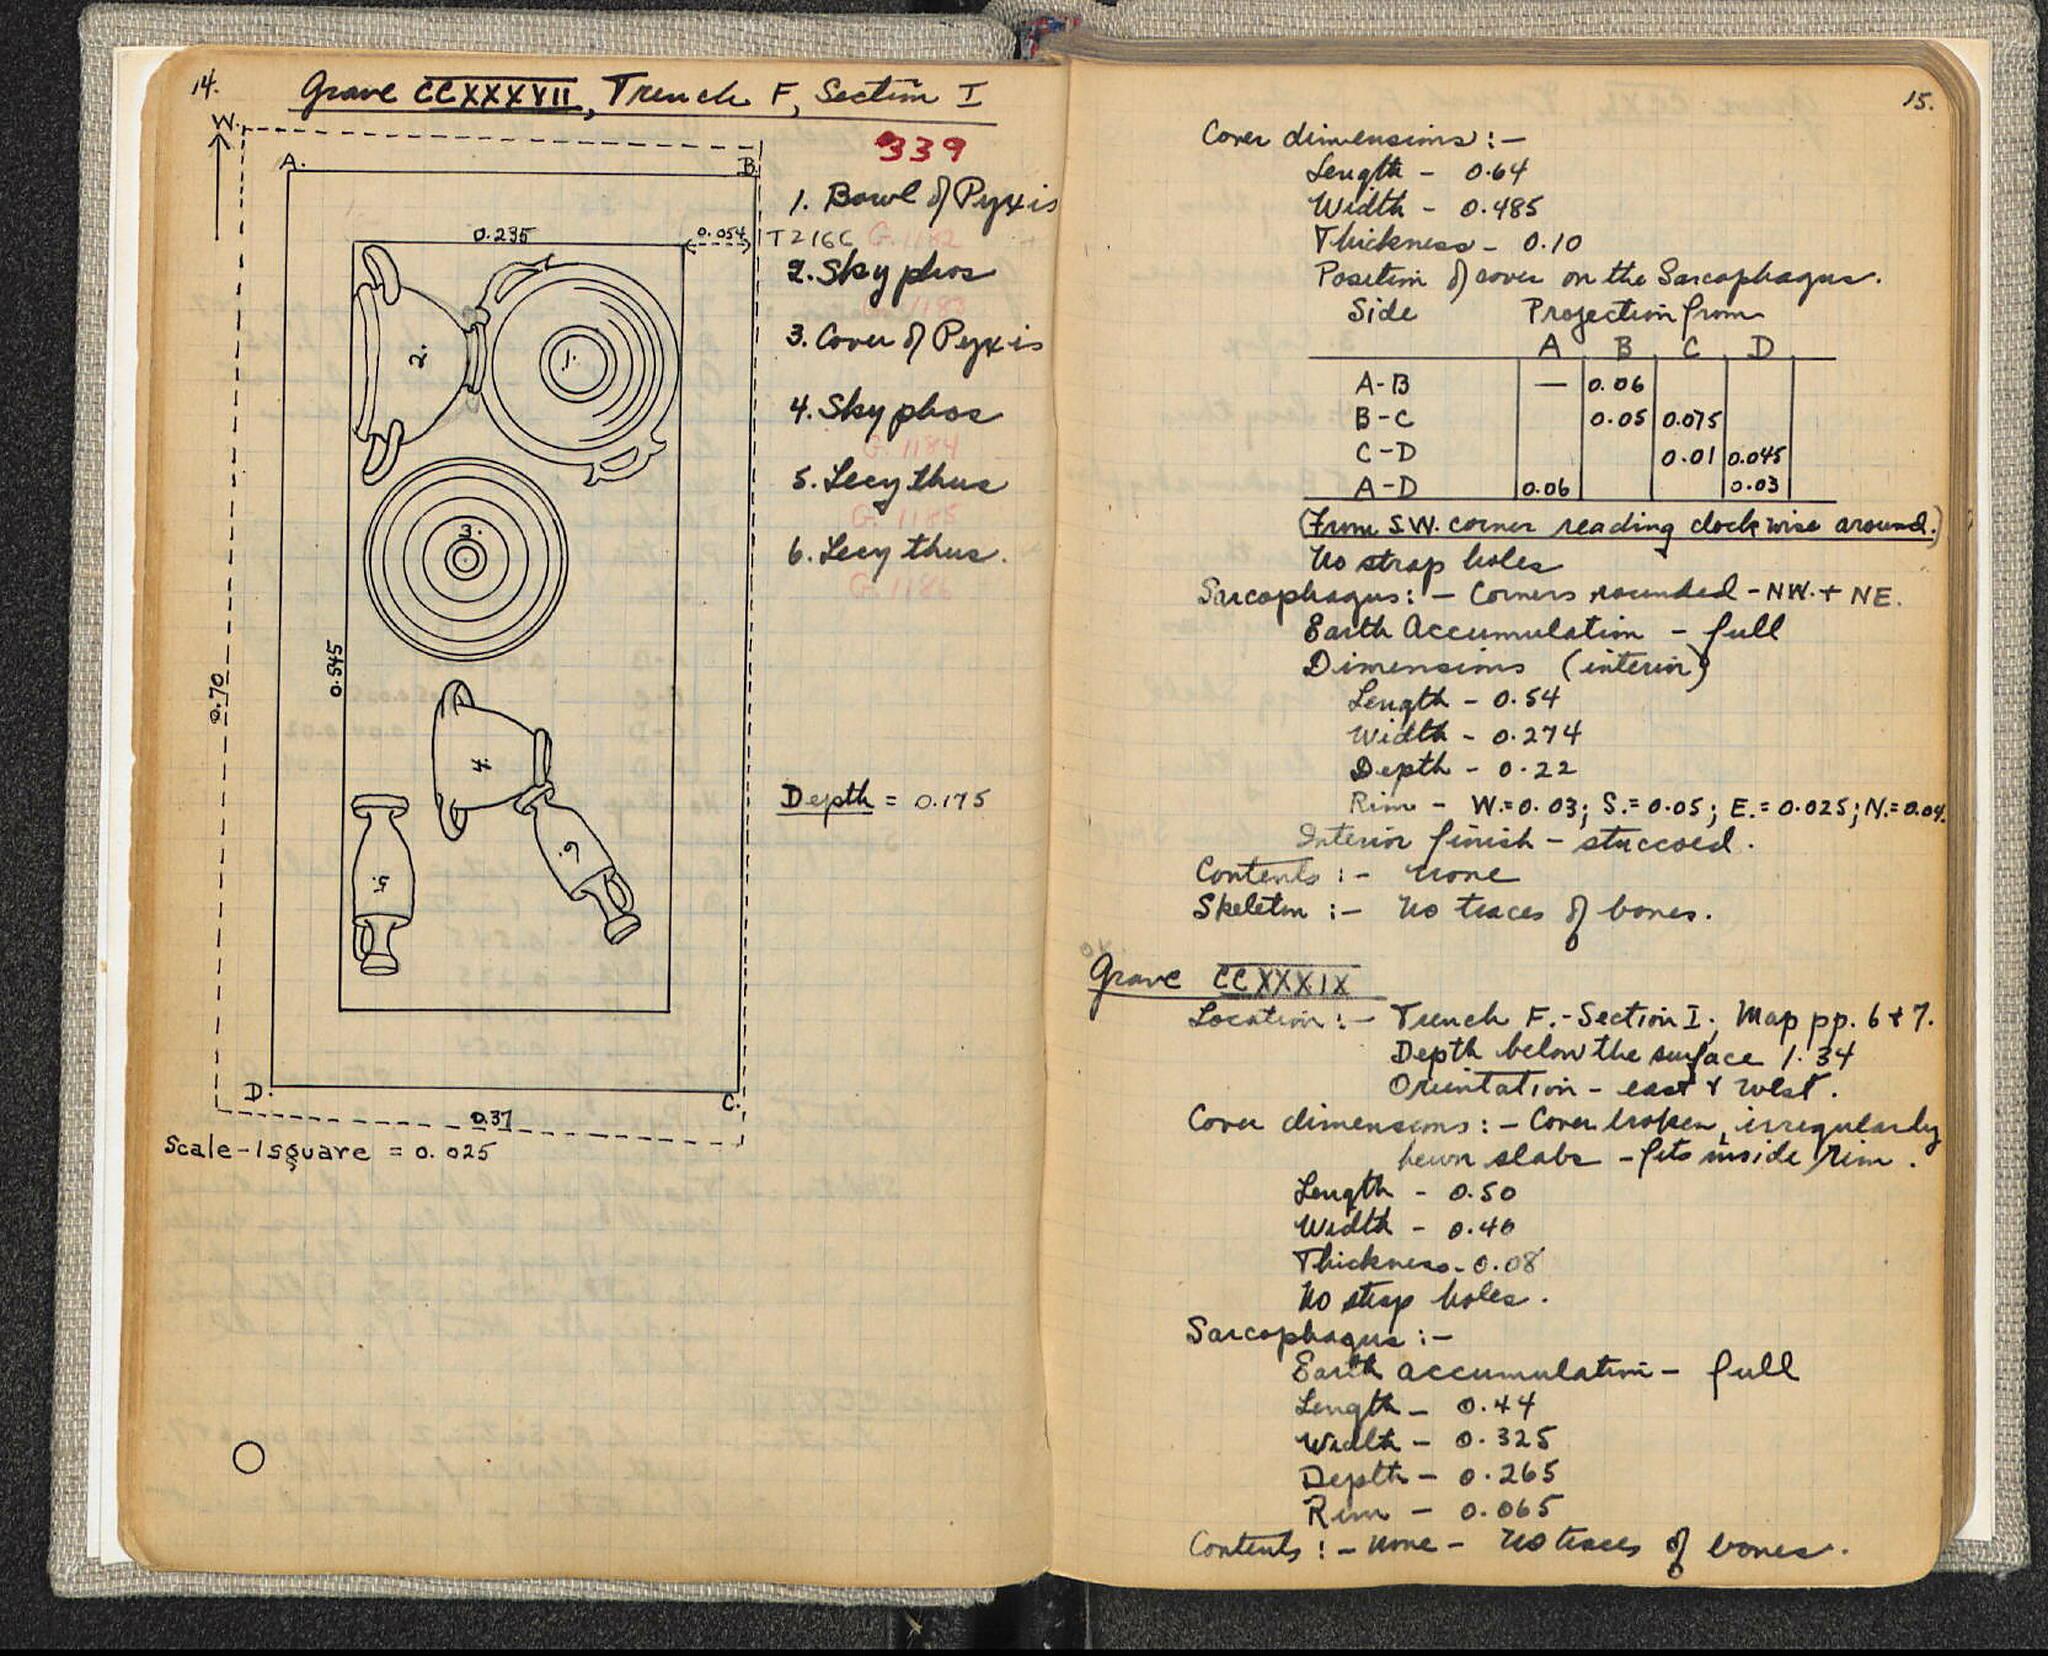 14.
Grave CCXXXVII, Trench F, Section I
W.
339
A.
B
1. Bowl of Pyxis
0.235
0.054
T216C G.1182
2. Skyphos
G.1183
3. Cover of Pyxis
4. Skyphos
G.1184
5. Lecythus
G.1185
6. Lecythus.
G.1186
1.
2.
3.
0.545
0.70
4.
5.
6.
Depth = 0.175
D.
C.
0.37
Scale-1 square = 0.025
15.
Cover dimensions:-
Length - 0.64
Width - 0.485
Thickness - 0.10
Position of cover on the Sarcophagus.
Side Projection from
A B C D
A-B — 0.06
B-C 0.05 0.075
C-D 0.01 0.045
A-D 0.06 0.03
(From S.W. corner reading clockwise around.)
No strap holes
Sarcophagus:- Corners rounded - NW. + NE.
Earth Accumulation - full
Dimensions (interior)
Length - 0.54
Width - 0.274
Depth - 0.22
Rim - W.=0.03; S.=0.05; E.=0.025; N.=0.04.
Interior finish - stuccoed.
Contents:- None
Skeleton:- No traces of bones.
Grave CCXXXIX
Location:- Trench F.-Section I; Map pp. 6 & 7.
Depth below the surface 1.34
Orientation - east & west.
Cover dimensions:- Cover broken, irregularly
hewn slabs - fits inside rim.
Length - 0.50
Width - 0.40
Thickness - 0.08
No strap holes.
Sarcophagus:-
Earth accumulation - full
Length - 0.44
Width - 0.325
Depth - 0.265
Rim - 0.065
Contents:- None - No traces of bones.